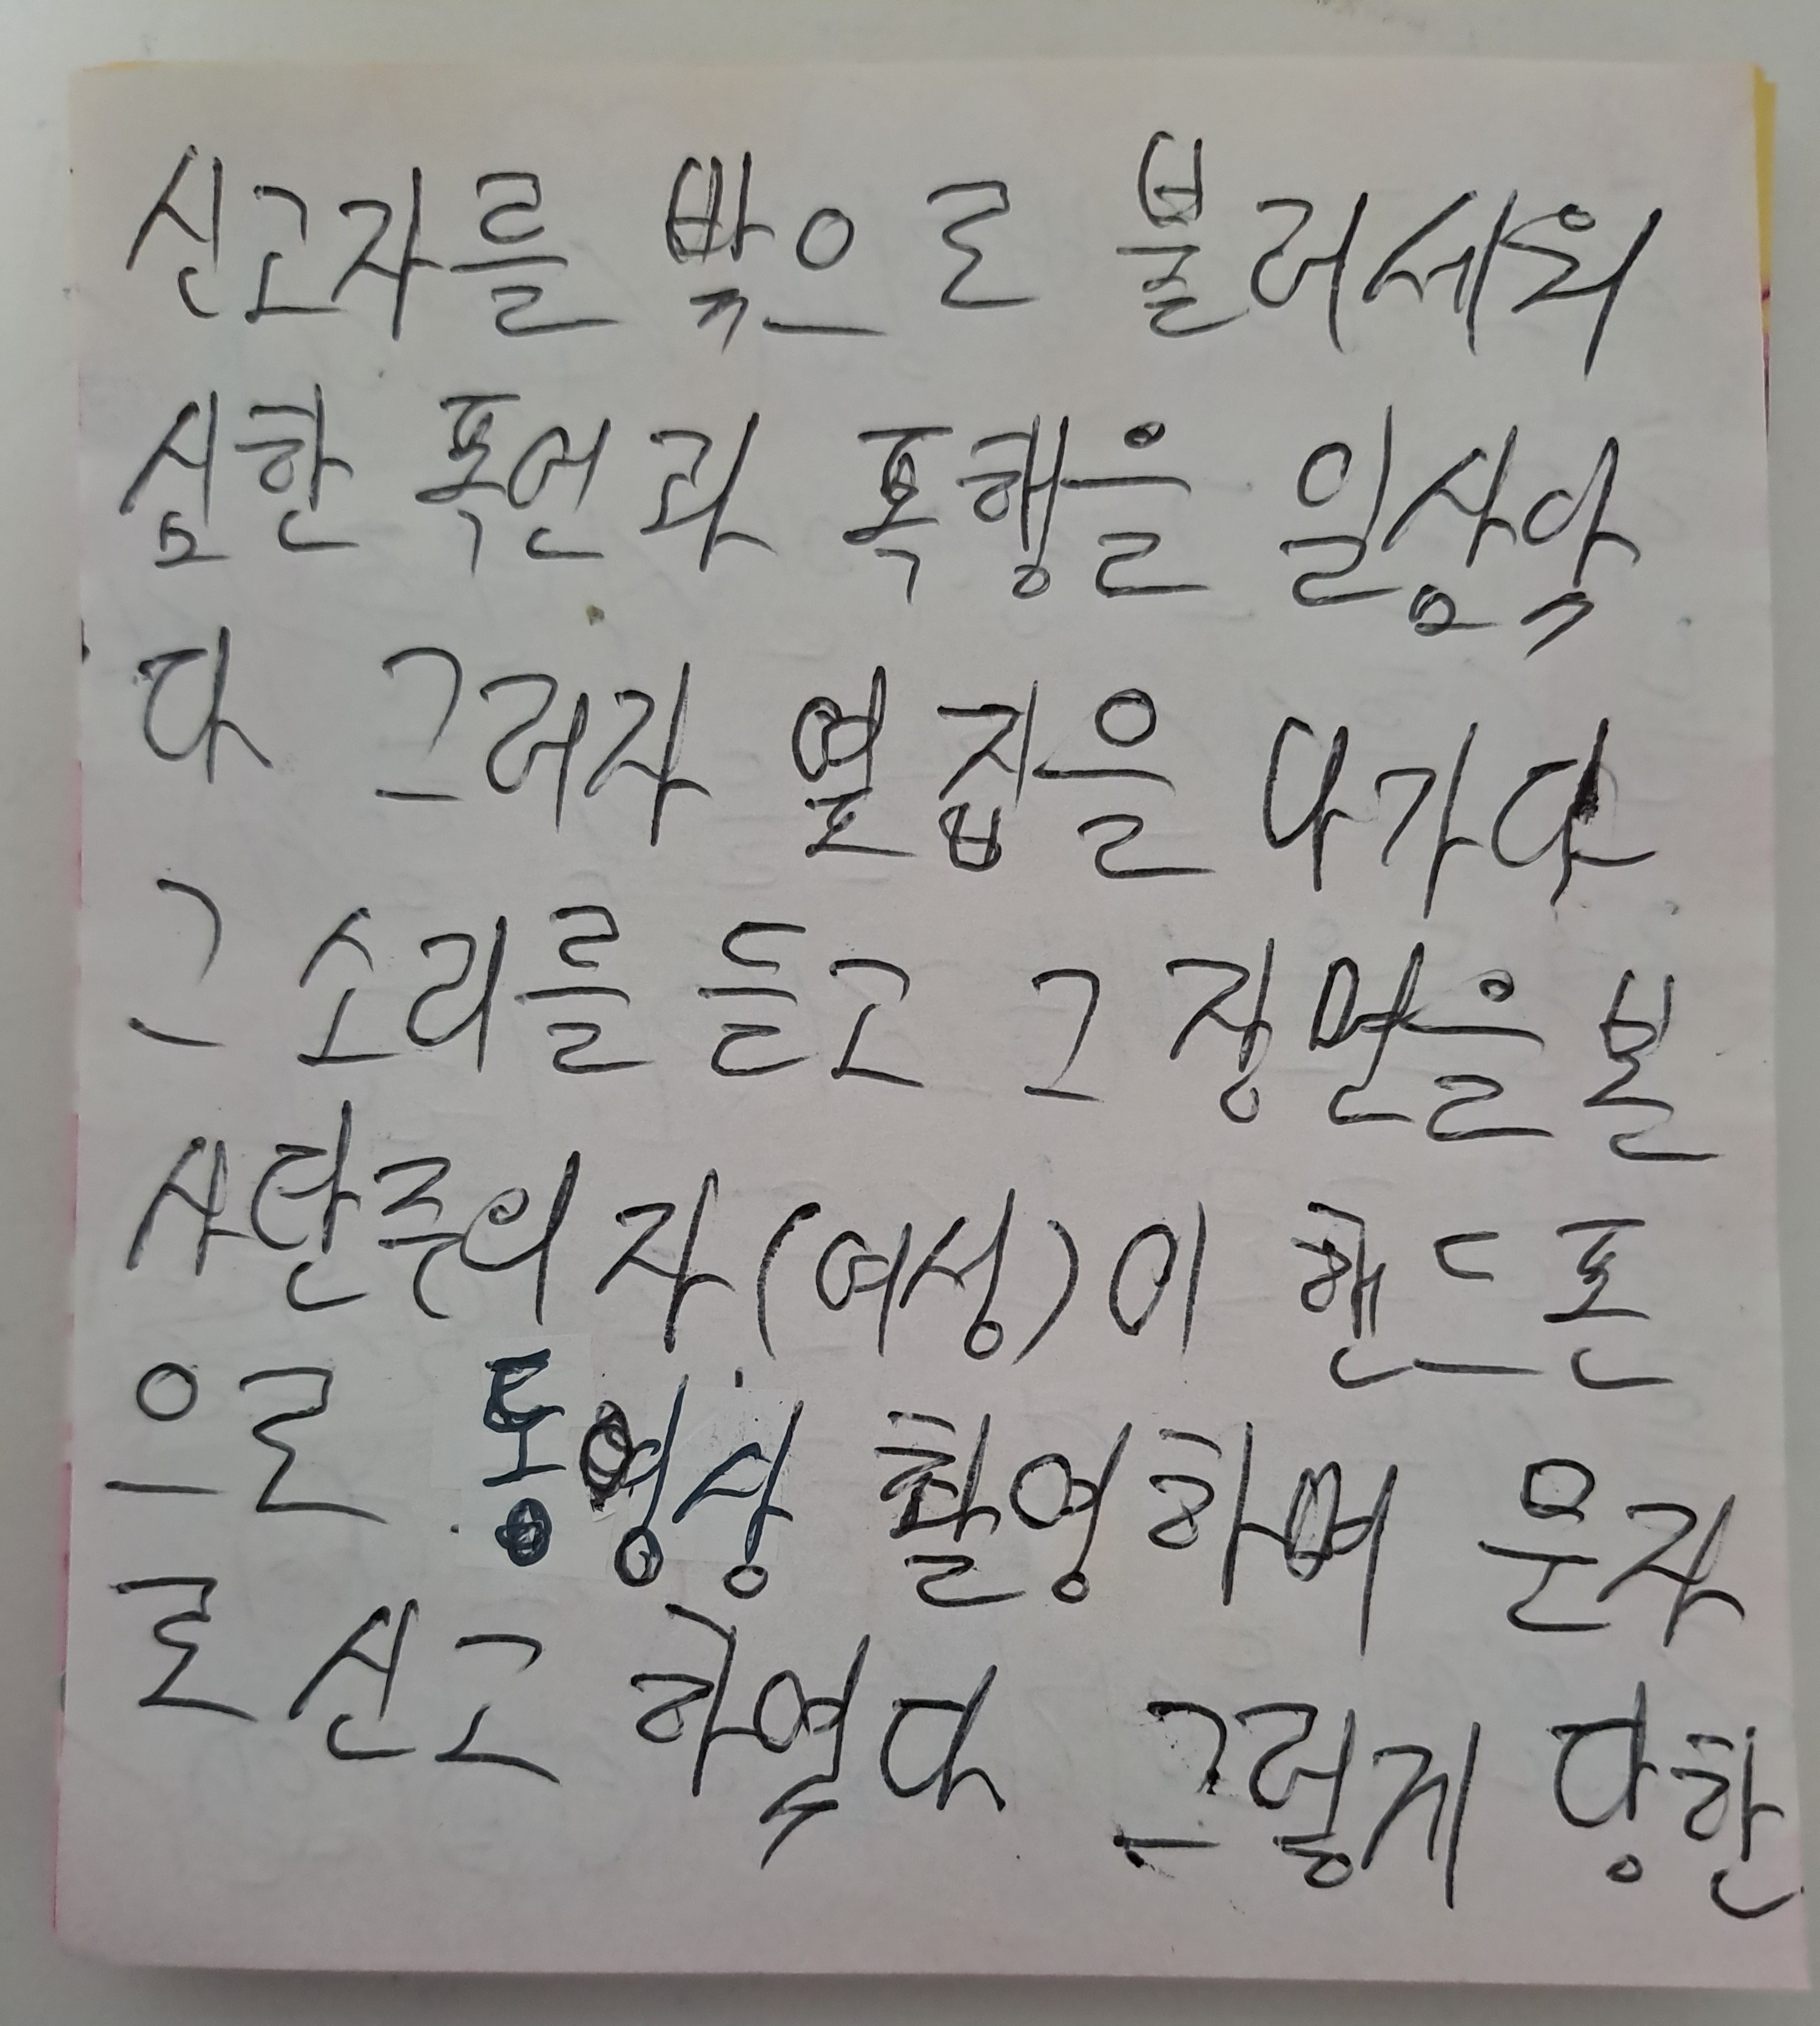 신고자를 밖으로 불러세워
심한 폭언과 폭행을 일삼앗
다 그러자 옆집을 나가다
그 소리를 듣고 그 장면을 본
사탄주의자(여성)이 핸드폰
으로 동영상 촬영하며 문자
로 신고 하엿다 그렇게 당한